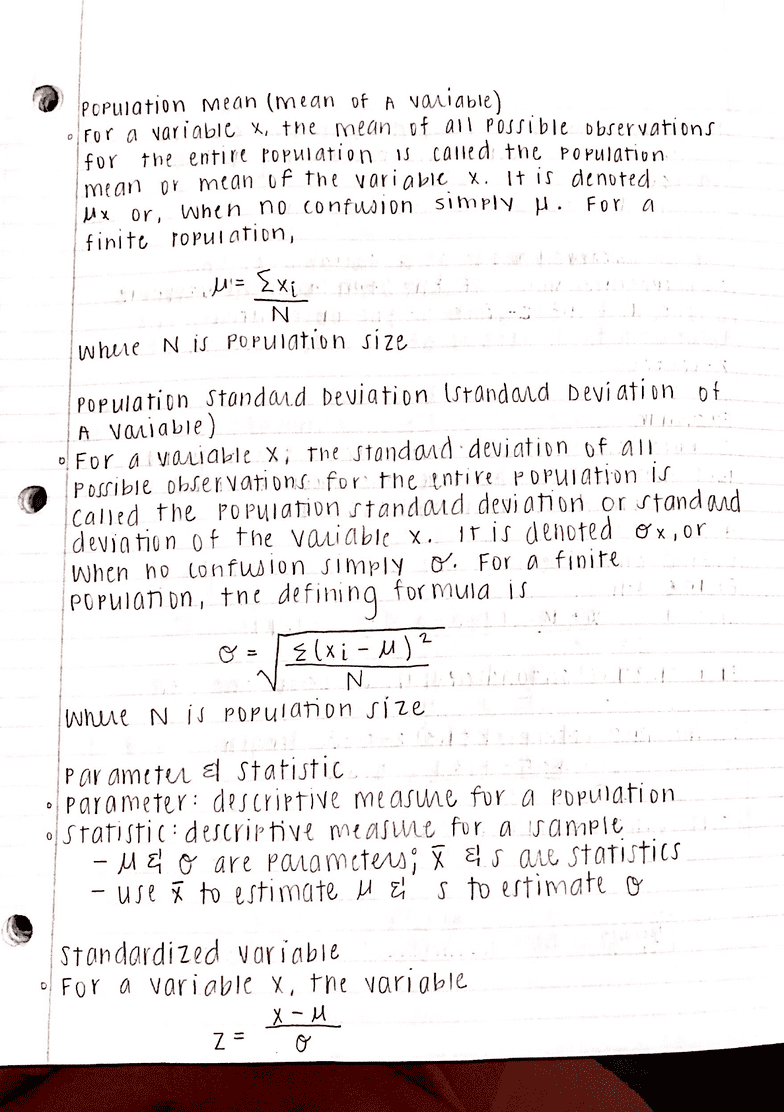 Population Mean (mean of A variable)
◦ For a variable x, the mean of all possible observations
for the entire population is called the population
mean or mean of the variable x. It is denoted
μx or, when no confusion simply μ. For a
finite population,
μ = Σxi
N
Where N is population size
Population Standard Deviation (Standard Deviation of
A variable)
◦ For a variable x, the standard deviation of all
possible observations for the entire population is
called the population standard deviation or standard
deviation of the variable x. It is denoted σx, or
when no confusion simply σ. For a finite
population, the defining formula is
σ = √Σ(xi - μ)²
N
Where N is population size
Parameter & Statistic
◦ Parameter: descriptive measure for a population
◦ Statistic: descriptive measure for a sample
- μ & σ are parameters; x̄ & s are statistics
- use x̄ to estimate μ & s to estimate σ
Standardized variable
◦ For a variable x, the variable
z = x - μ
σ